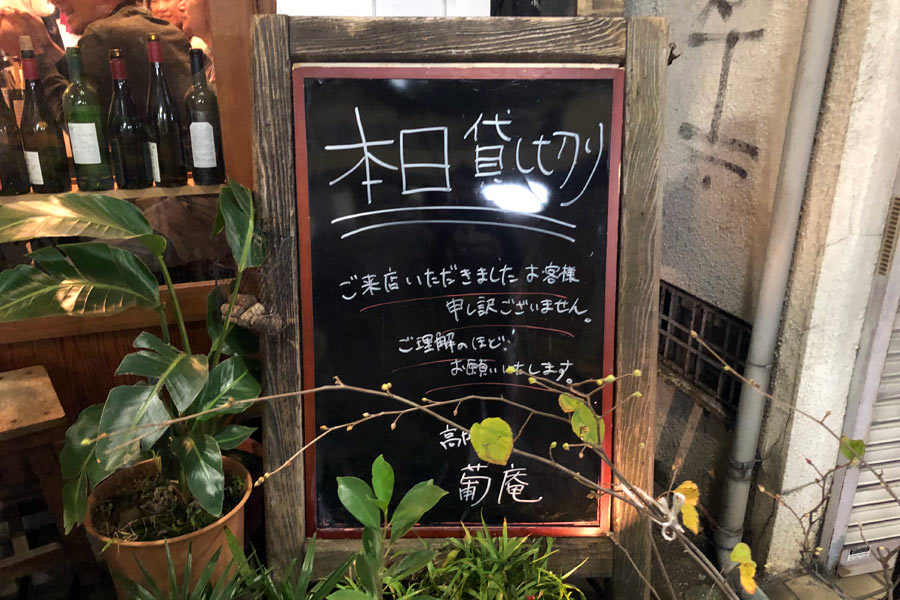 本日貸し切り
ご来店いただきましたお客様、
申し訳ございません。
ご理解のほど、
お願いいたします。
高
葡庵